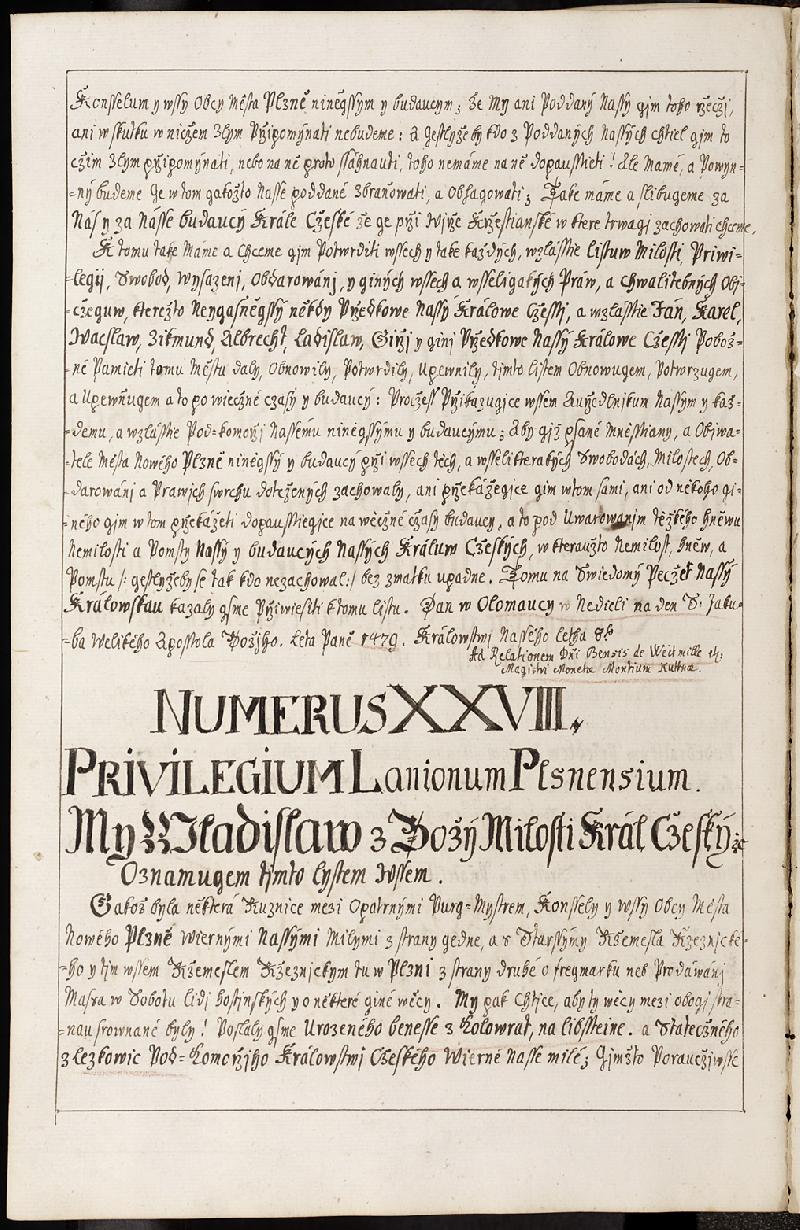 Konsselum y wssy Obcy Města Plzně niněgssym y budaucym; že My ani Poddaný Nassy gim toho rzeczj,
ani w skutku w niczem Zlym Przipomýnati nebudeme: a gestlyžeby kdo z Poddaných Nassých chtiel gim to
czim Zlym przipomýnati, nebo na ně proto sáhnauti, toho nemáme na ně dopaustieti! Ale Mámé, a Powyn-
=ný budeme ge w tom gakožto Nasse poddané Zbraňowati, a Obhagowati; Take máme a slibugeme za
Nás y za Násse budaucý Krále Czeské že ge przi Wjrze Krzestianské w ktere trwagj zachowati chceme,
K tomu také Máme a Chceme gjm Potwrditi wssech y také každých, wzlásstie listuw Milosti, Priwi-
=legij, Swobod, Wysazenj, Obdarowánj, y giných wssech a wsseligakých Práw, a chwalitebných Obj-
=cžeguw, kterežto Neygasněgssý někdy Przedkowe Nassý Králowe Czesstj, a wzlásstie Ján, Karel,
Wacslaw, Zikmund, Albrecht, Ladislaw, Girzj y ginj Przedkowe Nassý Králowe Czesstj Pobož=
=né Pamieti tomu Městu daly, Obnowily, Potwrdily, Upewnily, tjmto listem Obnowugem, Potwrzugem,
a Upewňugem a to po wieczné czasý y budaucý: Proczež Przikazugjce wssem Aurzedlnikum Nassym y kaž=
=demu, a wzlásstie Pod=komorzj Nassému niněgssýmu y budaucýmu; Aby gjž psané Mněsstiany, a Obiwa=
=tele Města Nowého Plzně niněgssý y budaucý przi wssech těch, a wsselikterakých Swobodách, Milostech, Ob=
=darowánj a Prawjch swrchu dotczených zachowaly, ani przekážegjce gim w tom sámi, ani od někoho gi=
=ného gim w tom przekážeti dopausstiegjce na wěczné czasy budaucý, a to pod Uwarowanjm těžkého hněwu
Nemilosti a Pomsty Nassý y budaucých Nassých Králuw Czeských, w kteraužto Nemilost, hněw, a
Pomstu /: gestlyžeby se tak kdo nezachowal :/ bez zmatku upadne. Tomu na Swiedomj Peczeť Nassý
Králowskau kazaly gsme Przwiesiti k tomu listu. Dan w Olomaucy w Nedieli na den S. Jaku=
=ba Welikého Aposstola Božjho. Léta Páně 1479. Králowstwj Nassého létha 8.º
Ad Relationem Dni Benssis de Weitmille etc:
Magistri Monetæ Montium Kuttnæ.
NUMERUS XXVIII.
PRIVILEGIUM Lanionum Plsnensium.
My Wladislaw z Božý Milosti Král Czeský etc
Oznamugem tjmto lystem Wssem.
Gakož byla některá Ruznice mezi Opatrnými Purg=Mystrem, Konssely y wssý Obcy Města
Nowého Plzně Wiernými Nassými Milými z strany gedné, a s Starssýmy Rzemesla Rzeznické=
=ho y tjm wssem Rzemeslem Rzeznjckym tu w Plzni z strany druhé o freymarku neb Prodáwánj
Masa w Sobotu lidj hostinských y o některé giné wěcy. My pak Chtjce, aby ty wěcy mezi obogj stra=
=nau srownané byly! Poslaly gsme Urozeného Benesse z Kolowrat, na libssteine. a Statecžného
z lezkowic Pod=Komorzjho Králowstwj Czeského Wierné Nasse milé; Gjmžto Porauczjwsse